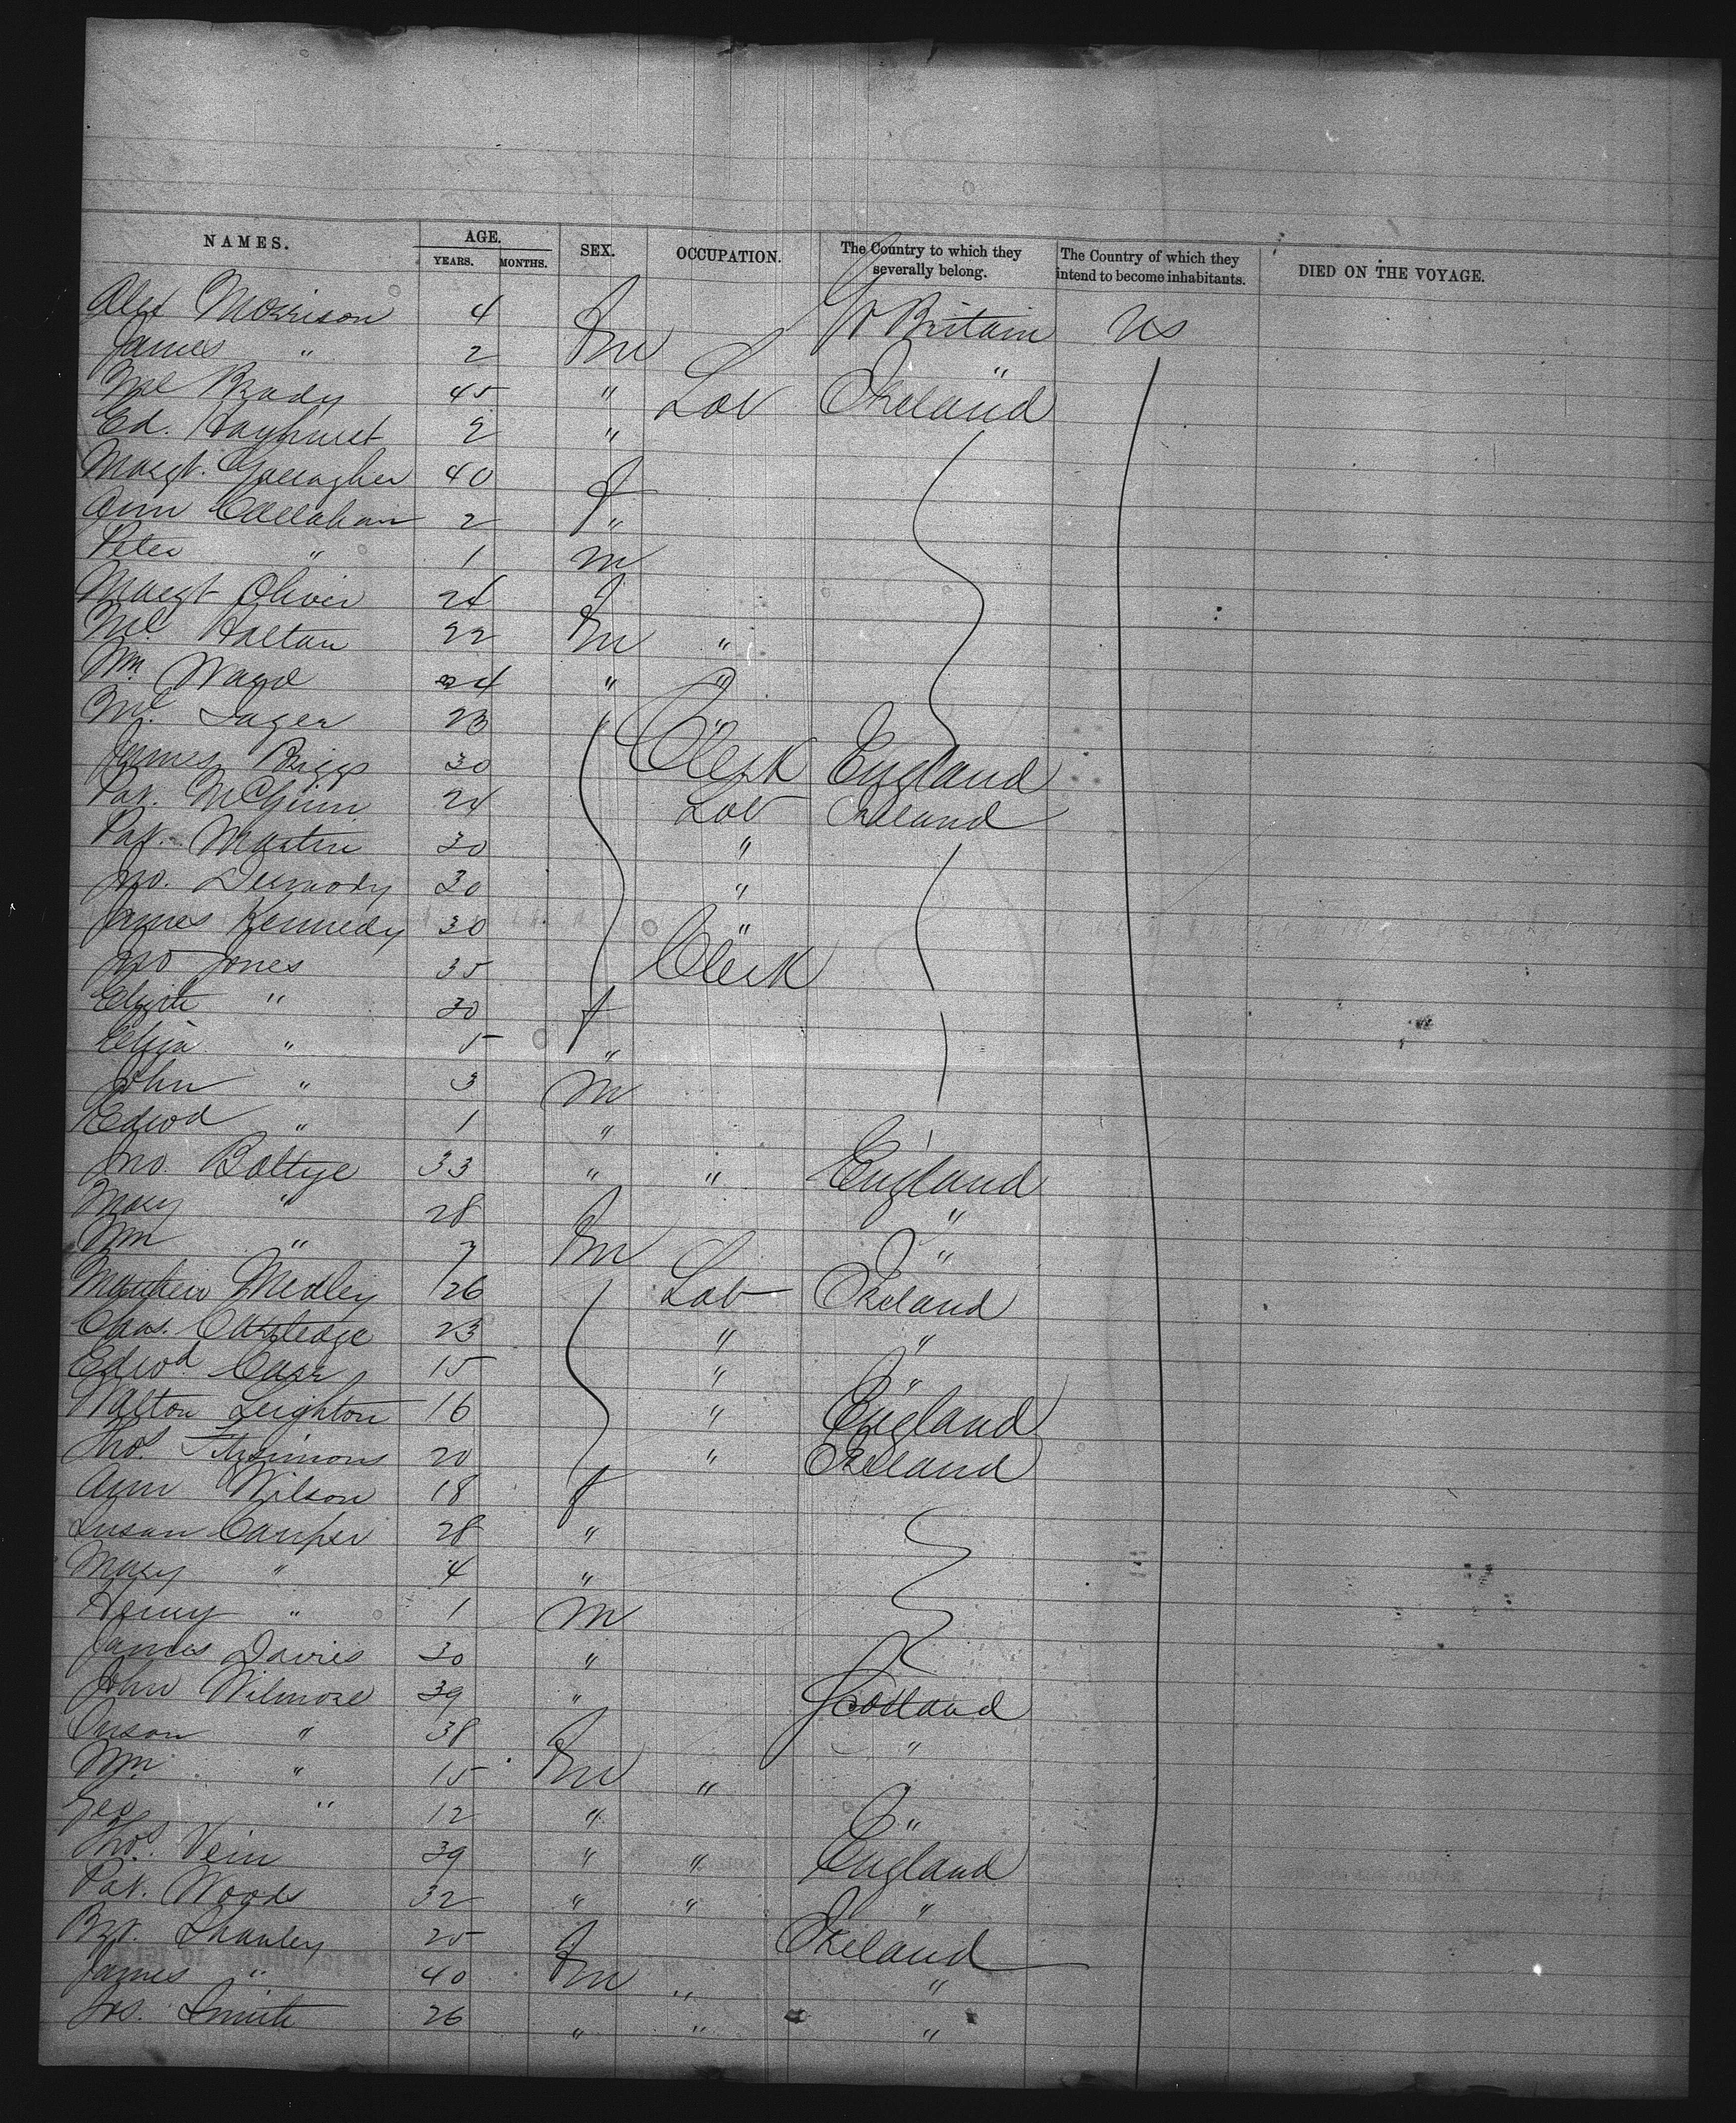 NAMES. AGE. SEX. OCCUPATION. The Country to which they severally belong. The Country of which they intend to become inhabitants. DIED ON THE VOYAGE.
YEARS. MONTHS.
Alex Morrison 4 Gt Britain US
James " 2 m "
Ml Brady 45 " Lab Ireland
Ed. Hayhurst 2 "
Margt. Gallagher 40 f
Ann Callahan 2 "
Peter " 1 m
Margt Oliver 24 f
Ml 22 m "
Wm. Ward 24 " "
Ml. 23 "
James Briggs 30 Clerk England
Pat. McGinn 24 Lab Ireland
Pat. Martin 30 "
Jno. Dermody 30 "
James Kennedy 30 "
Jno Jones 35 Clerk
" 30 f
Eliza " 5 "
John " 3 m
Edwd " 1 "
Jno. Baltye 33 " " England
Mary " 28 f "
Wm " 7 m "
Matthew Medley 26 Lab Ireland
Chas. Cartledge 23 " "
Edwd. Carr 15 " "
Walton Leighton 16 " England
Thos. Fitzsimons 20 " Ireland
Ann Wilson 18 f
Susan 28 "
Mary " 4 "
Henry " 1 m
James Davies 30 "
John Wilmore 39 " Scotland
" 38 f "
Wm " 15 m "
Geo " 12 " "
Thos. Vein 39 " " England
Pat. Woods 32 " " "
Bgt. Shanley 25 f Ireland
James " 40 m " "
Jos. Smith 26 " " "